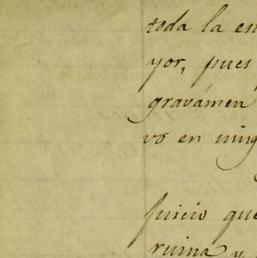 toda la en
yor, pues
gravámen
vo en ning
juicio que
ruina y